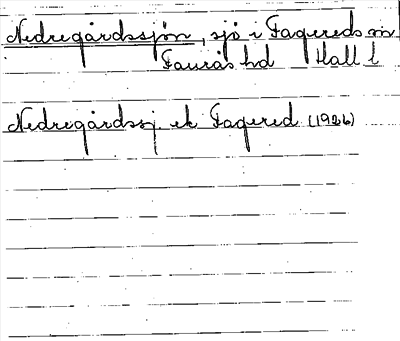 Nedregårdssjön, sjö i Fagereds sn
Faurås hd Hall l
Nedregårdssj. ek Fagered (1926)